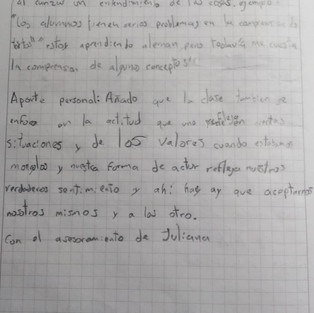 al anzar un entendimiento de las cosas, ejemplo
"Los alumnos tienen varios problemas en la comprension de
estoy aprendiendo aleman pero todavia me cuesta
la comprension de algunos conceptos
Aporte personal: Añado que la clase tambien se
enfoco en la actitud que uno refleja antes
situaciones y de los valores cuando
morales y nuestra forma de actur refleja nuestros
verdaderos sentimiento y ahi hay que aceptarnos
nosotros mismos y a los otro.
Con el asesoramiento de Juliana